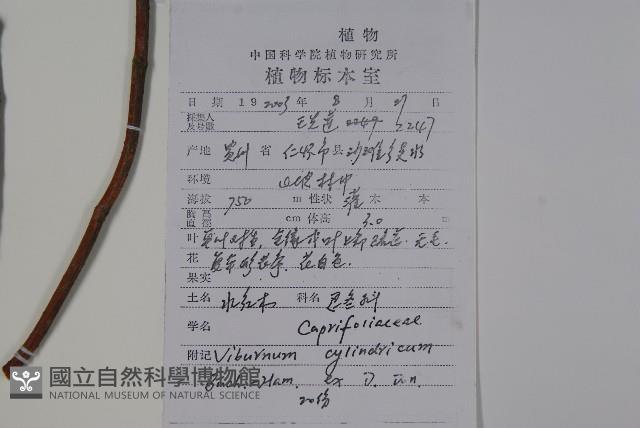 植物
中国科学院植物研究所
植物标本室
日期 19 2003 年 8 月 日
採集人及号数 2247 2247
产地 贵州 省 仁怀市 县
环境 山坡林中
海拔 750 m 性状 灌 木 本
胸高直径 cm 体高 3.0 m
叶 单叶对生, 无毛.
花 花白色.
果实
土名 水红木 科名 忍冬科
学名 Caprifoliaceae
附记 Viburnum cylindricum
Buch.-Ham. ex D. Don.
20份
國立自然科學博物館
NATIONAL MUSEUM OF NATURAL SCIENCE